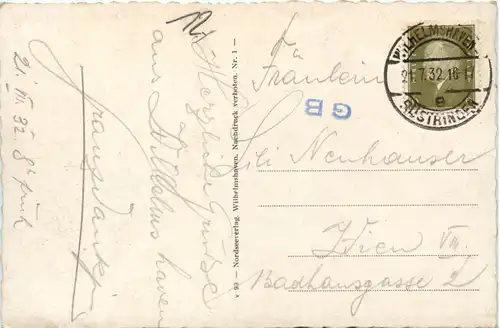 Herzliche Grüße
aus Wilhelmshaven
21. VII. 32. 8h früh
v 93 — Nordseeverlag. Wilhelmshaven. Nachdruck verboten. Nr. 1 —
WILHELMSHAVEN
21.7.32.16-17
a
RÜSTRINGEN
GB
Fräulein
Lili Neuhauser
Wien VII.
Badhausgasse 2